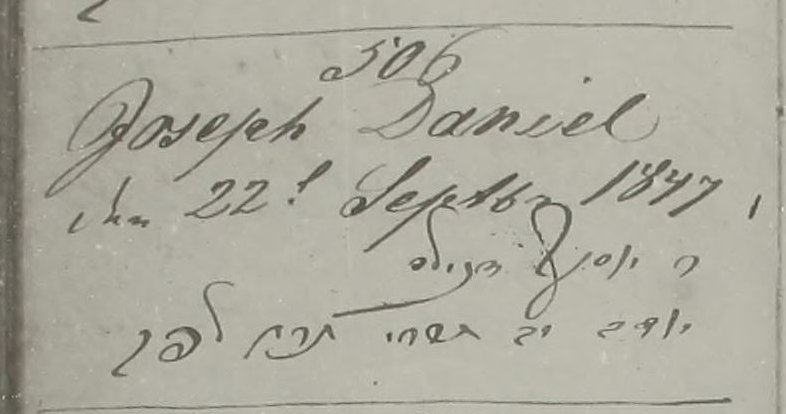 506
Joseph Daniel
den 22t Septbr 1847
יוסף דניאל
יום ד יב תשרי תרח לפק